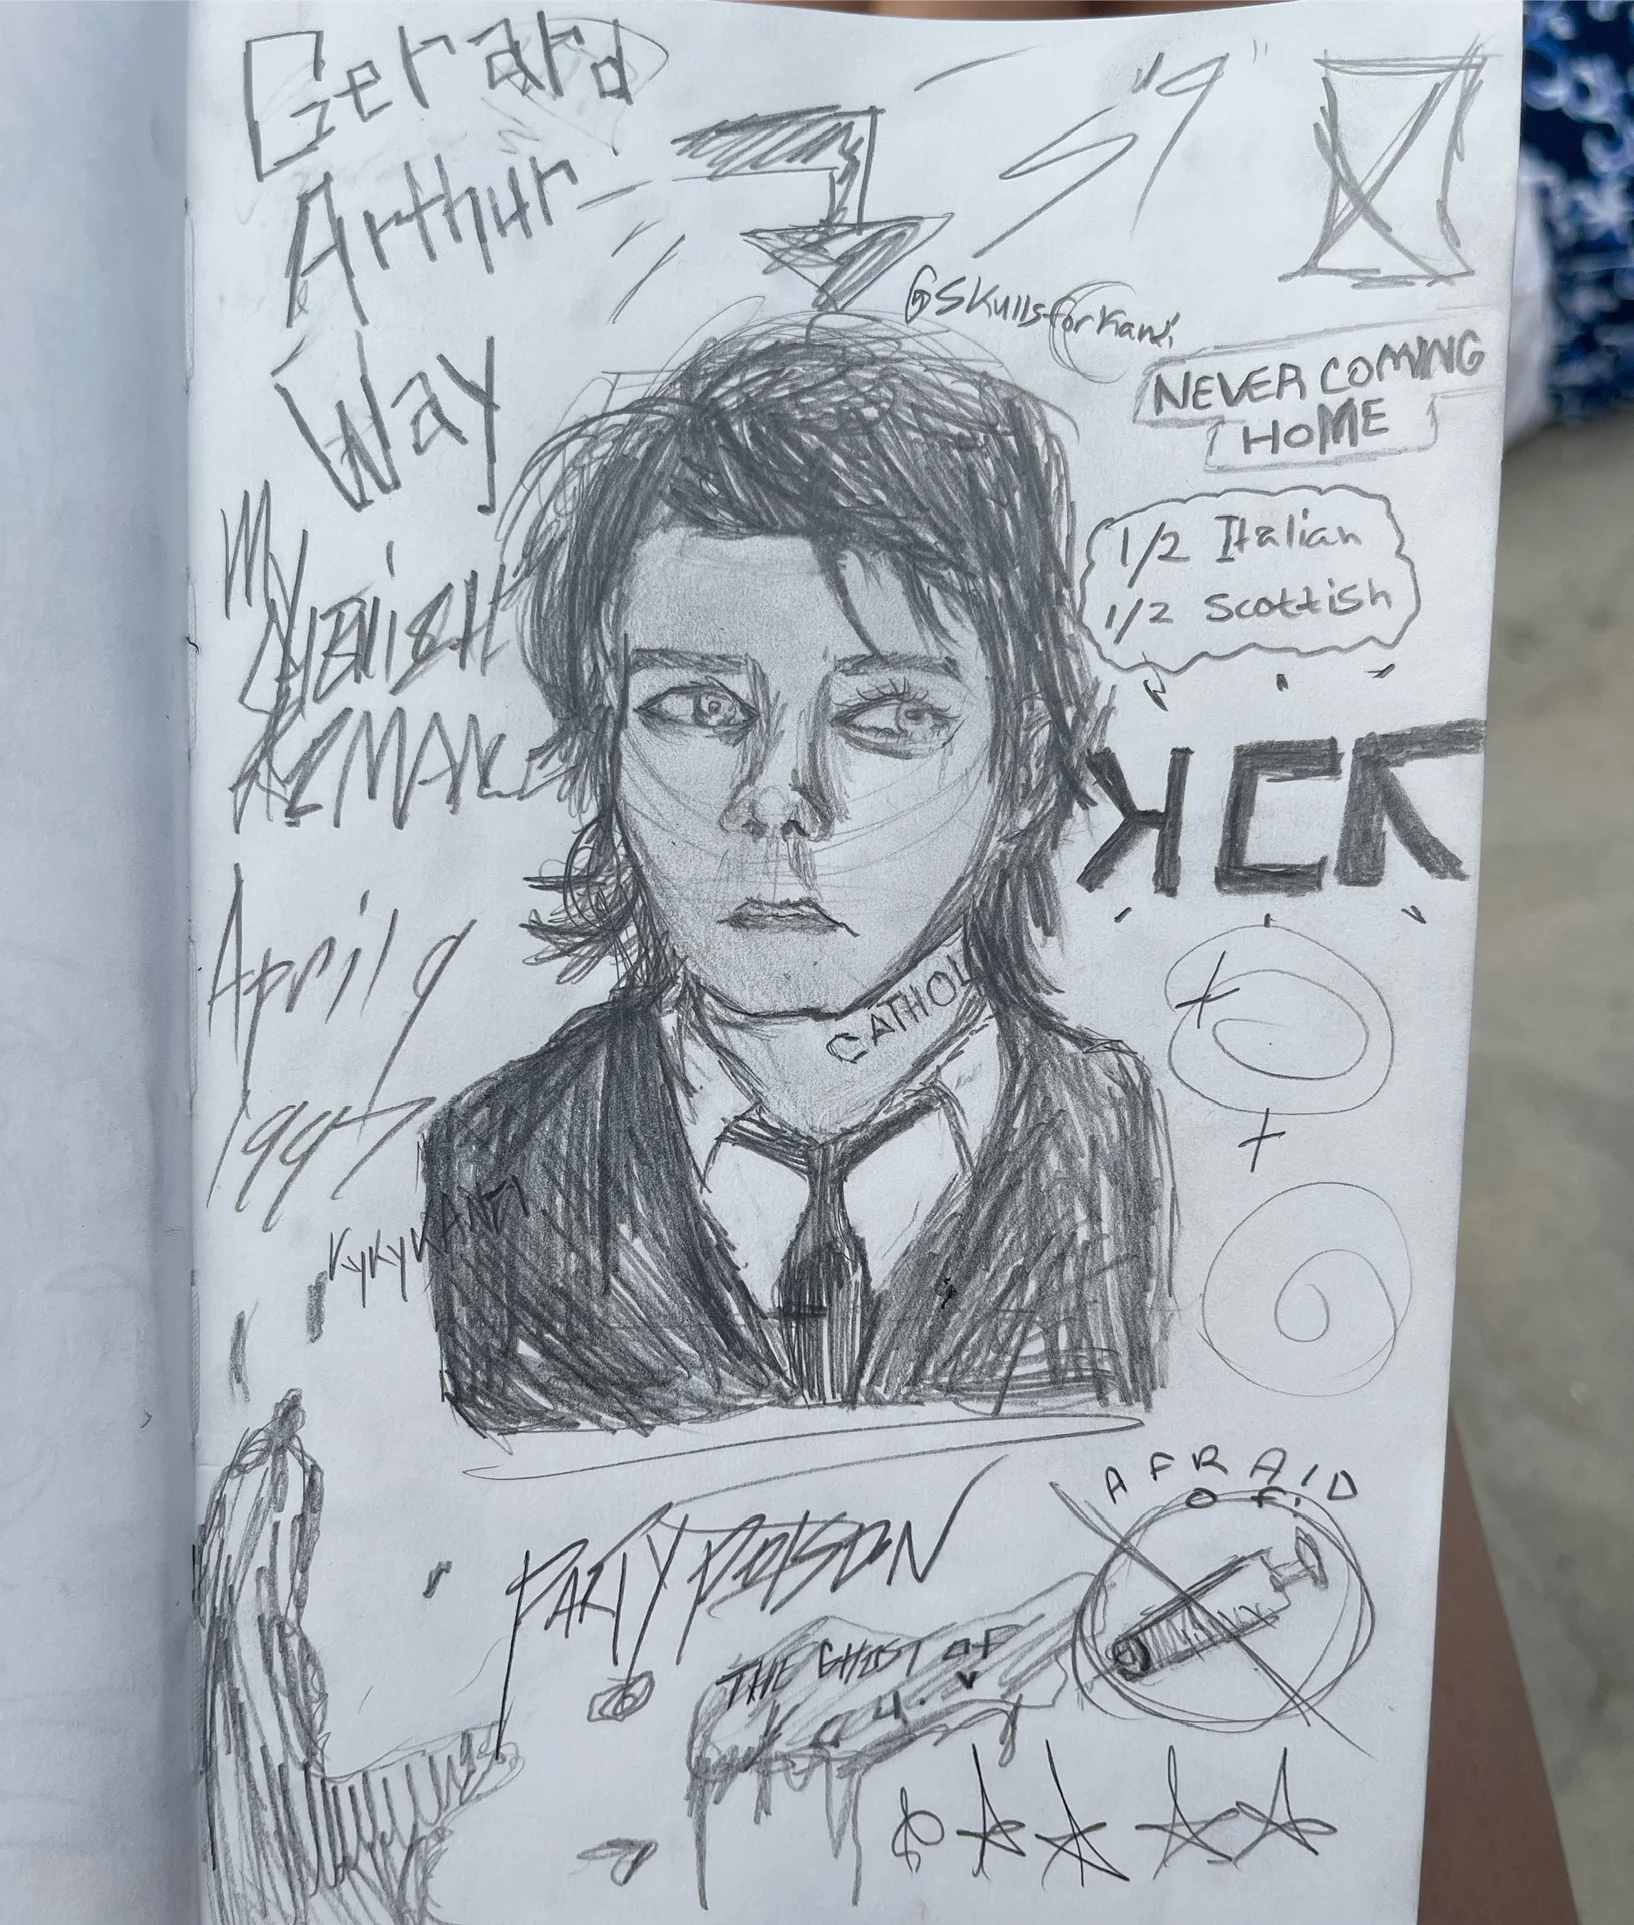 Gerard
Arthur
Way
5'9"
@Skullsforkanzi
NEVER COMING
HOME
1/2 Italian
1/2 Scottish
My
April 9
1997
CATHOL
PARTY POISON
AFRAID
OF:
THE GHOST OF
YOU.